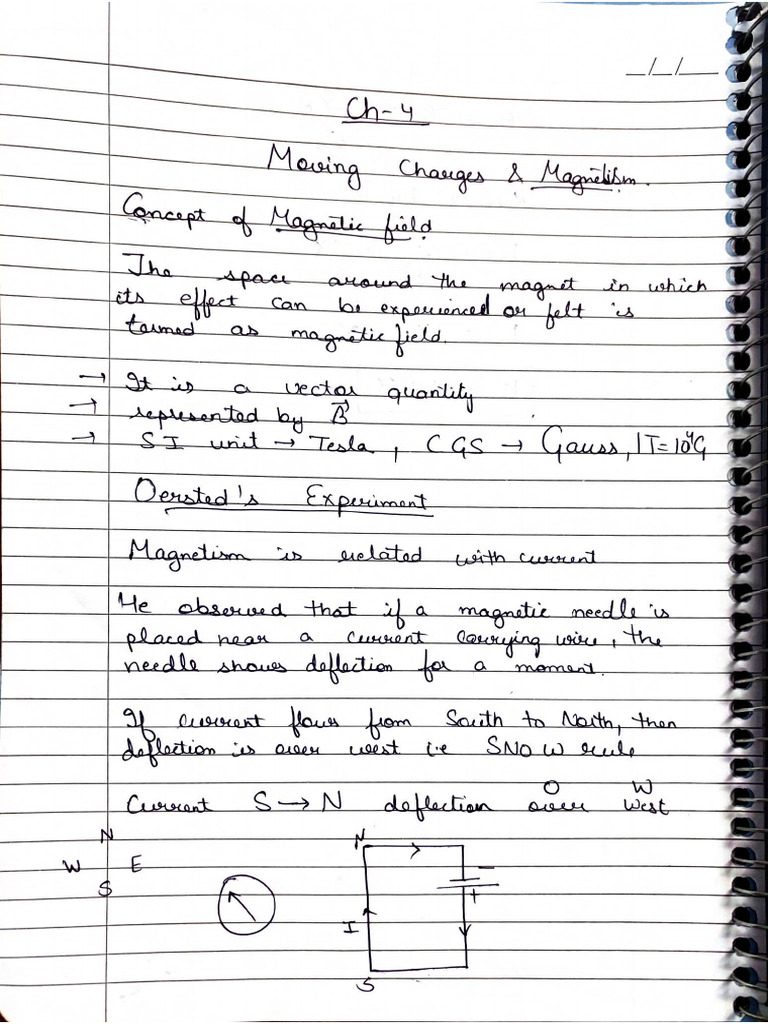 _/_/_
Ch-4
Moving Charges & Magnetism.
Concept of Magnetic field
The space around the magnet in which
its effect can be experienced or felt is
termed as magnetic field.
→ It is a vector quantity
→ represented by B⃗
→ SI unit → Tesla, CGS → Gauss, 1T = 10⁴G
Oersted's Experiment
Magnetism is related with current
He observed that if a magnetic needle is
placed near a current carrying wire, the
needle shows deflection for a moment.
If current flows from South to North, then
deflection is over west i.e SNOW rule
O W
Current S → N deflection over West
N
W E
S
N
−
+
I
S